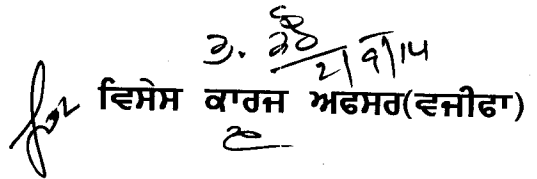 2/9/14
for ਵਿਸੇਸ ਕਾਰਜ ਅਫਸਰ(ਵਜੀਫਾ)